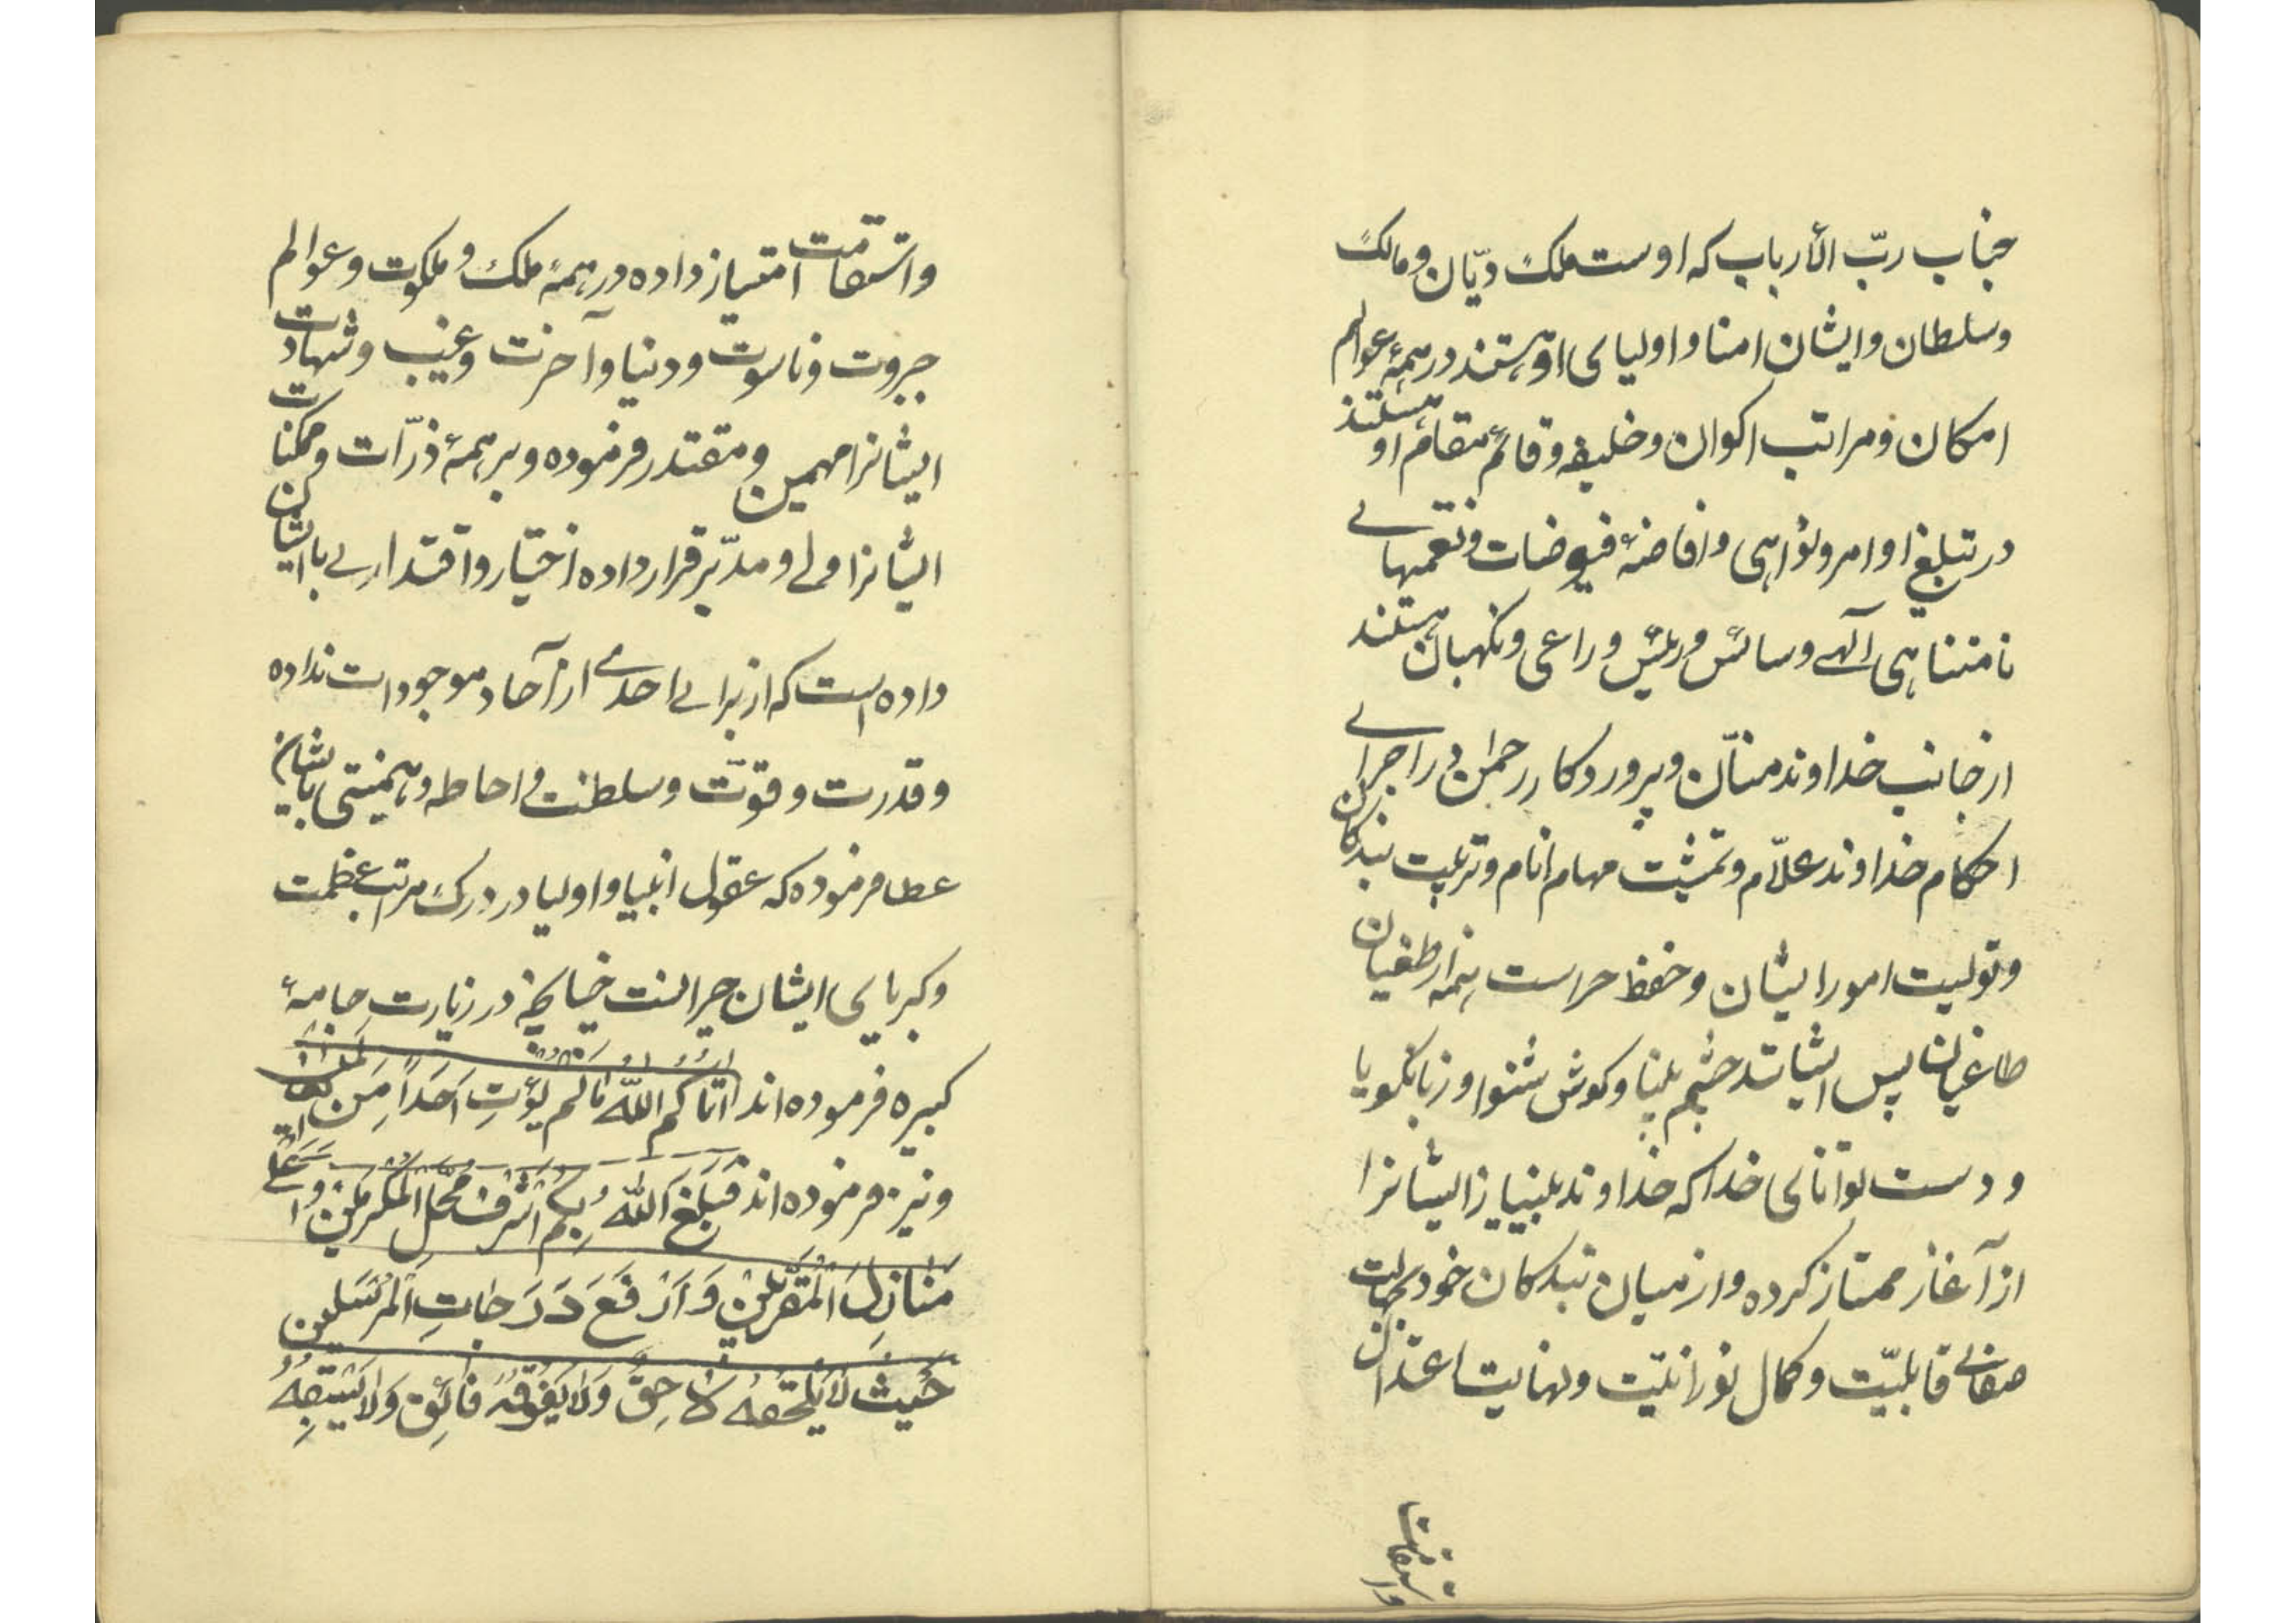 جناب ربّ الأرباب که اوست ملک دیّان و مالک
و سلطان و ایشان امنا و اولیای او هستند در همهٔ عوالم
امکان و مراتب اکوان و خلیفه و قائم مقام او هستند
در تبلیغ اوامر و نواهی و افاضهٔ فیوضات و نعمتهای
نامتناهی الٓهی و سائس و رئیس و راعی و نکهبان هستند
از جانب خداوند منّان و پروردکار رحمن در اجرای
احکام خداوند علّام و تمشیت مهام انام و تربیت بندکان
و تولیت امور ایشان و حفظ حراست همه از طغیان
طاغیان پس ایشانند چشم بینا و کوش شنوا و زبان کویا
و دست توانای خدا که خداوند بینیاز ایشانرا
از آغاز ممتاز کرده و از میان بندکان خود بجهت
صفای قابلیّت و کمال نورانیّت و نهایت اعتدال
واستقامت
و استقامت امتیاز داده در همهٔ ملک و ملکوت و عوالم
جبروت و ناسوت و دنیا و آخرت و غیب و شهادت
ایشانرا مهمین و مقتدر فرموده و بر همهٔ ذرّات و ممکنات
ایشانرا ولی و مدبّر قرار داده اختیار و اقتداری با ایشان
داده است که از برای احدی از آحاد موجودات نداده
و قدرت و قوّت و سلطنت و احاطه و هیمنتی بایشان
عطا فرموده که عقول انبیا و اولیا در درک مراتب عظمت
و کبریای ایشان حیرانست چنانچه در زیارت جامعهٔ
کبیره فرموده اند اٰتاکُم اللّٰهُ مٰا لَم یُؤتِ اَحَداً مِنَ العٰالَمینَ
و نیز فرموده اند فَبَلَغَ اللّٰهُ بِکُم اَشْرَفَ مَحَلِّ الْمُکَرَّمینَ وَ اَعْلیٰ
مَنٰازِلِ الْمُقَرَّبینَ وَ اَرْفَعَ دَرَجٰاتِ الْمُرْسَلینَ
حَیْثُ لٰا یَلْحَقُهُ لٰاحِقٌ وَ لٰا یَفُوقُهُ فٰائِقٌ وَ لٰا یَسْبِقُهُ